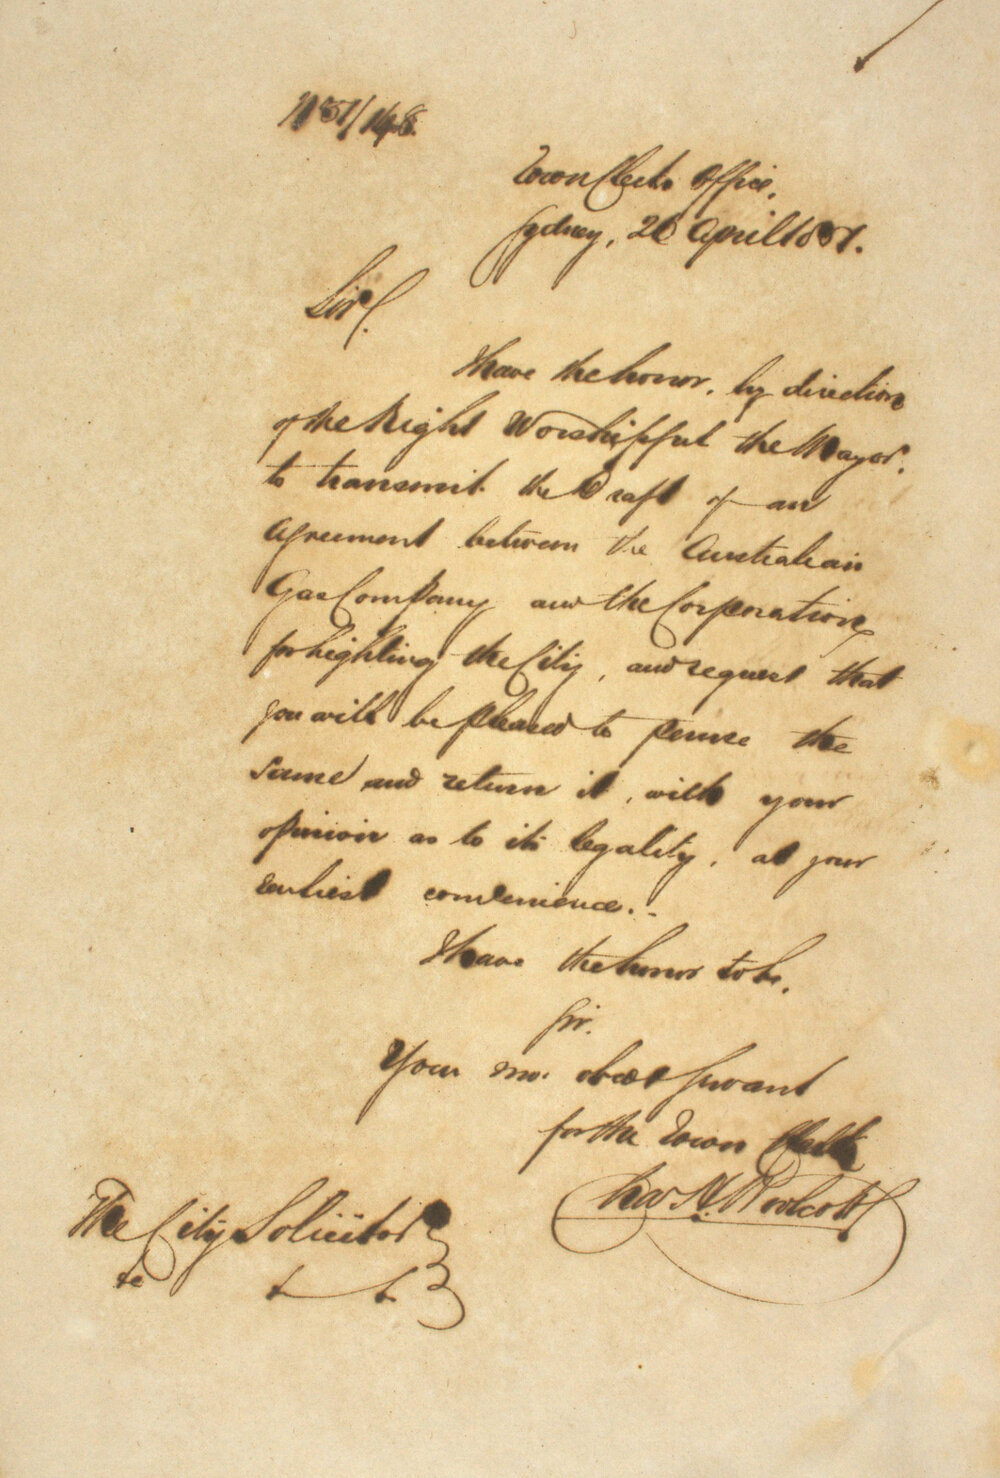 No 57/148.
Town Clerk's Office,
Sydney, 20 April 1857.
Sir,
I have the honor, by direction
of the Right Worshipful the Mayor,
to transmit the Draft of an
Agreement between the Australian
Gas Company and the Corporation,
for lighting the City, and request that
you will be pleased to peruse the
same and return it, with your
opinion as to its legality, at your
earliest convenience.
I have the honor to be,
Sir.
Your mo. obedt Servant
for the Town Clerk
Chas H. Woolcott
The City Solicitor
&c & &